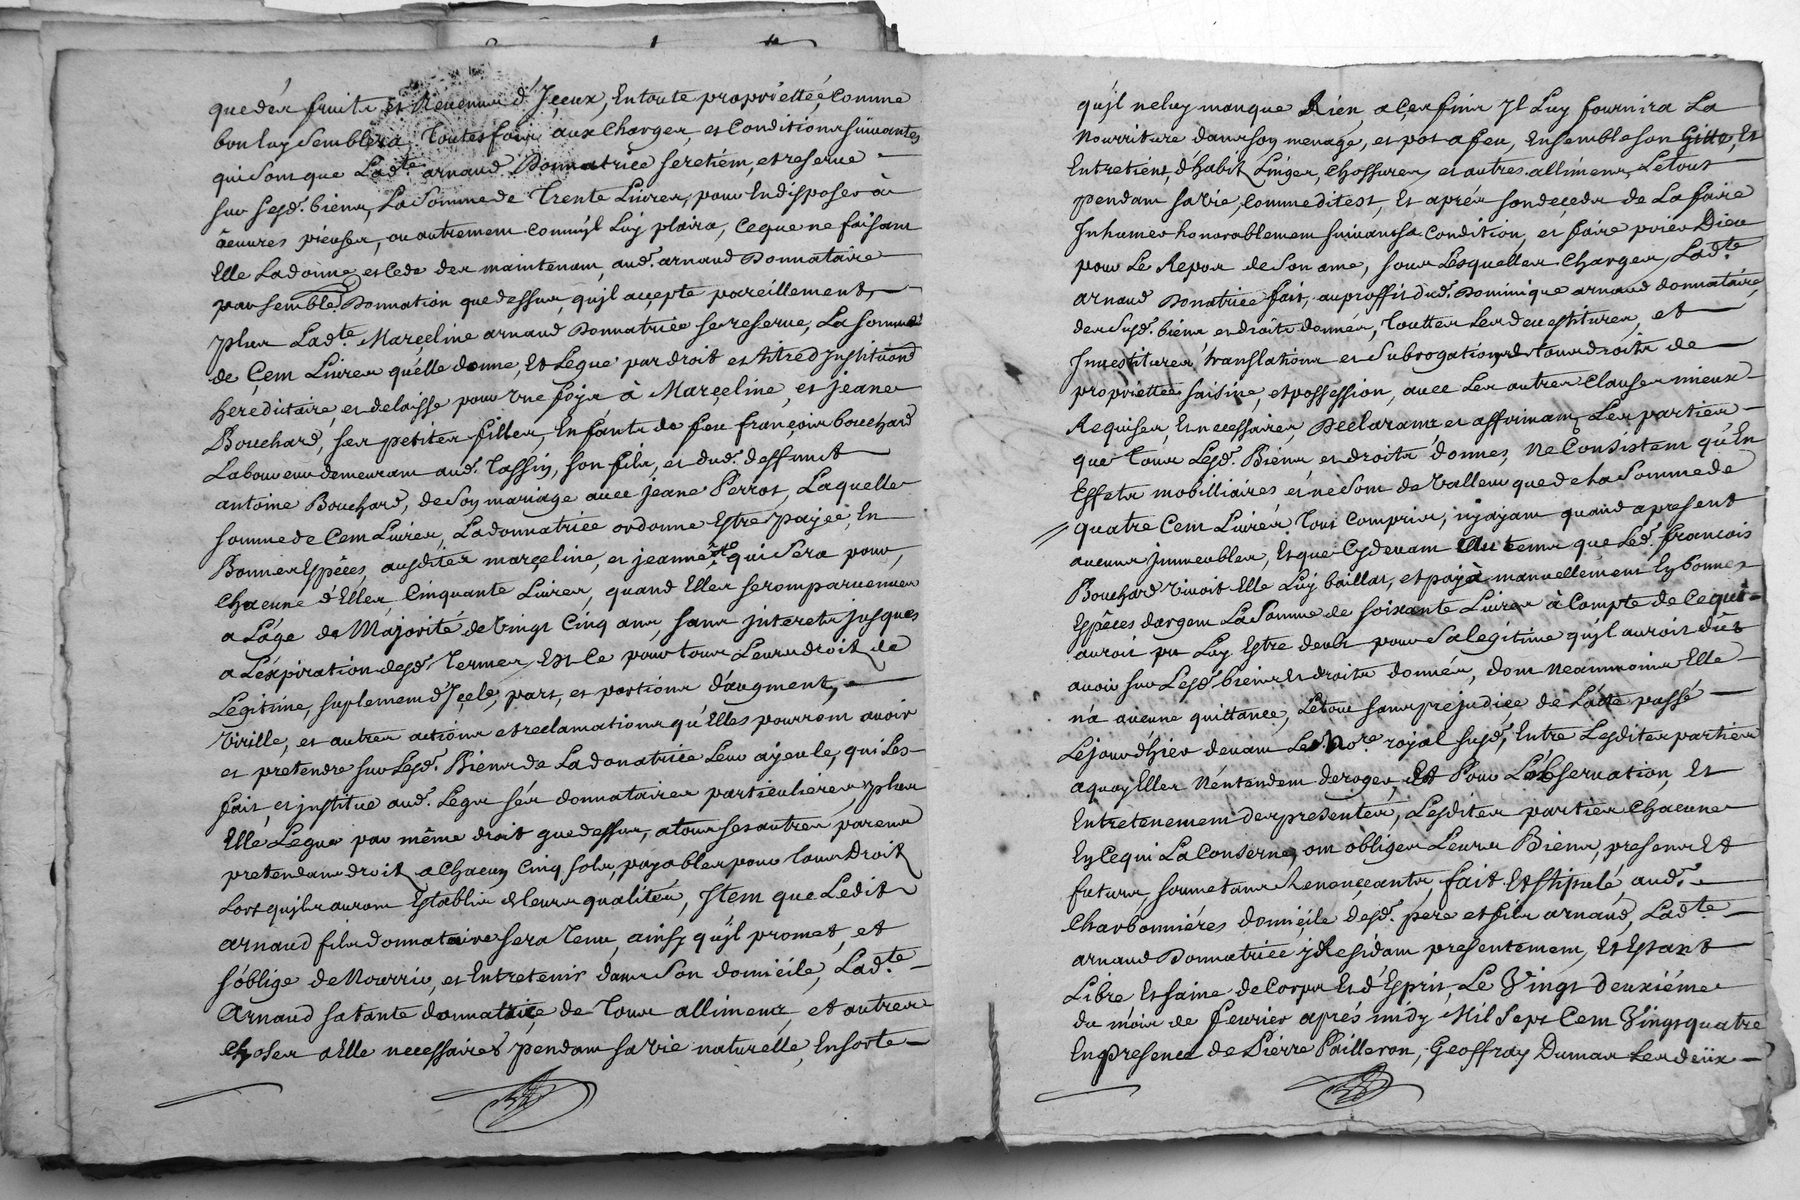 que des fruits et Revenus d'Jceux, En toute proprietté, Comme
bon luy Semblera, Toutesfois aux Charges, et Conditions suivantes
qui Sont que Lad.te arnaud Donnatrice se retient, et reserve
sur sesd. biens, La Somme de Trente Livres, pour En disposer à
œuvres pieuses, ou autrement comm'jl Luy plaira, Ceque ne faisant
Elle La donne et Cede des maintenant, aud. arnaud Donnataire
par semble. Donnation que dessus, qu'jl accepte pareillement,
plus Lad.te Marceline arnaud Donnatrice se reserve, La somme
de Cent Livres qu'elle donne, Et Legue par droit et titre d'Jnstitution
hereditaire, et delaisse pour Une fois à Marceline, et jeane
Bouchard, ses petites filles, Enfants de feu françois bouchard
Laboureur demeurant aud. Tassin, son fils, et dud. deffunct
antoine Bouchard, de Son mariage avec jeane Perrot, Laquelle
somme de Cent Livres, La donnatrice ordonne Estre payée, En
Bonnes Espêces, ausdites marceline, et jeanne qui Sera pour,
Chacune d'Elles, Cinquante Livres, quand Elles seront parvenues
a L'âge de Majorité de Vingt Cinq ans, sans jnterets jusques
a L'éxpiration desd. Termes, Et Ce pour tous Leurs droits de
Legitime, suplement d'Jcele, part, et portions d'augment,
Virille, et autres actions et reclamations qu'Elles pourront avoir
et pretendre sur Lesd. Biens de La donatrice Leur ayeule, qui Les
fait, et jnstitue aud. Legs ses donnataires particulieres, plus
Elle Legue par même droit que dessus, a tous ses autres parens
pretendans droit, a Chacun Cinq sols, payables pour tous Droits
Lors qu'jls auront Establis de leurs qualités, Jtem que Ledit
arnaud fils donnataire sera Tenu, ainsy qu'jl promet, et
s'oblige de Nourrir, et Entretenir dans Son domicile, Lad.te
Arnaud sa tante donnatrice de Tous alliments, et autres
choses a Elle necessaires pendant sa Vie naturelle, En sorte
qu'jl ne luy manque Rien, a Ces fins Jl Luy fournira La
Nourriture dans son menage, et pot a feu, Ensemble son Gitte, Et
Entretient, d'habits, Linges, Chossures, et autres alliments, Le tout
pendant sa Vie, comme dit est, Et aprés son decedz de La faire
Jnhumer honorablement suivant sa Condition, et faire prier Dieu
pour Le Repos de Son ame, sous Lesquelles Charges, Lad.te
arnaud Donatrice fait, au proffit dud. Dominique arnaud donnataire,
des susd. biens et droits donnés, Touttes Les devestitures, et
Jnvestitures, translations et Subrogations de tous droits de
proprietté, saisine, et possession, avec Les autres Clauses mieux
Requises, Et necessaires, Declarant et affirmant Les parties
que Tous Lesd. Biens et droits donnés, Ne Consistent qu'En
Effets mobilliaires et ne Sont de Valleur que de La Somme de
quatre Cent Livres Tout Compris, n'jayant quand a present
aucuns jmmeubles, Et que Cydevant Au tems que Led. francois
Bouchard Vivoit Elle Luy baillat, et paya manuellement En bonnes
Espêces d'argent La Somme de soixante Livres à Compte de Cequi
auroit pu Luy Estre deub pour Sa legitime qu'jl auroit dût
avoir sur Lesd. biens Et droits donnés, dont neammoins Elle
n'a aucune quittance, Le tout sans prejudice de L'acte passé
Le jour d'hier devant Le No.re royal susd., Entre Lesdites parties
aquoy Elles N'entendent deroger, Et Pour L'observation, Et
Entretenement des presentes, Lesdites parties Chacune
En Cequi La Conserne, ont obligés Leurs Biens, presens Et
futurs, soumettans Renonçeants, fait Et stipulé aud.
Charbonniéres domicile desd. pére et fils arnaud, Lad.te
arnaud Donnatrice y Residant presentement, Et Estant
Libre Et saine de Corps Et d'Esprit, Le Vingt deuxiéme
du mois de fevrier aprés midy Mil Sept Cent Vingt quatre
En presence de Pierre Pailleron, Geoffray Dumas Les deüx